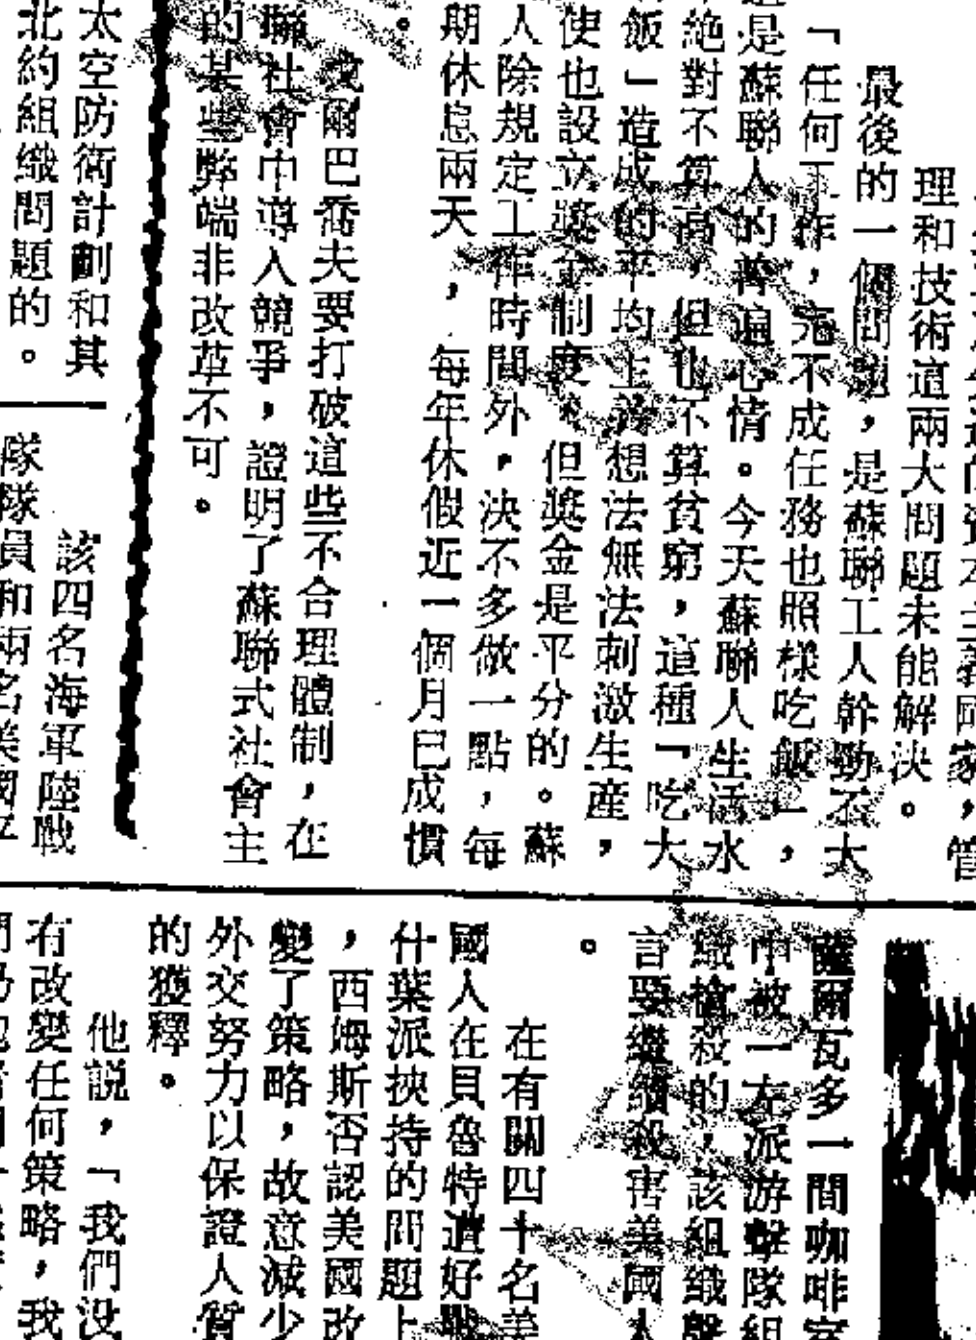 理和技術這兩大問題未能解決。
最後的一個問題，是蘇聯工人幹勁不大
「任何工作，完不成任務也照樣吃飯」，
是蘇聯人的普遍心情。今天蘇聯人生活水
絕對不算高，但也不算貧窮，這種「吃大
飯」造成的平均主義想法無法刺激生產，
使也設立獎金制度，但獎金是平分的。蘇
人除規定工作時間外，決不多做一點，每
期休息兩天，每年休假近一個月已成慣
。
戈爾巴喬夫要打破這些不合理體制，在
聯社會中導入競爭，證明了蘇聯式社會主
的某些弊端非改革不可。
太空防衛計劃和其
北約組織問題的。
該四名海軍陸戰
隊隊員和兩名美國平
薩爾瓦多一間咖啡室
中被一左派游擊隊組
織槍殺的，該組織聲
言要繼續殺害美國人
。
在有關四十名美
國人在貝魯特遭好戰
什葉派挾持的問題上
，西姆斯否認美國改
變了策略，故意減少
外交努力以保證人質
的獲釋。
他説，「我們没
有改變任何策略，我